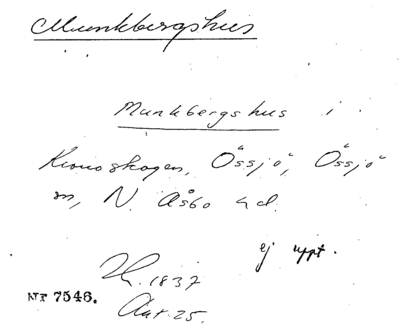 Munkbergshus
Munkbergshus i
Kronoskogen, Össjö, Össjö
sn, N. Åsbo hd.
ej uppt.
1837
NTF 7546. Akt. 25.